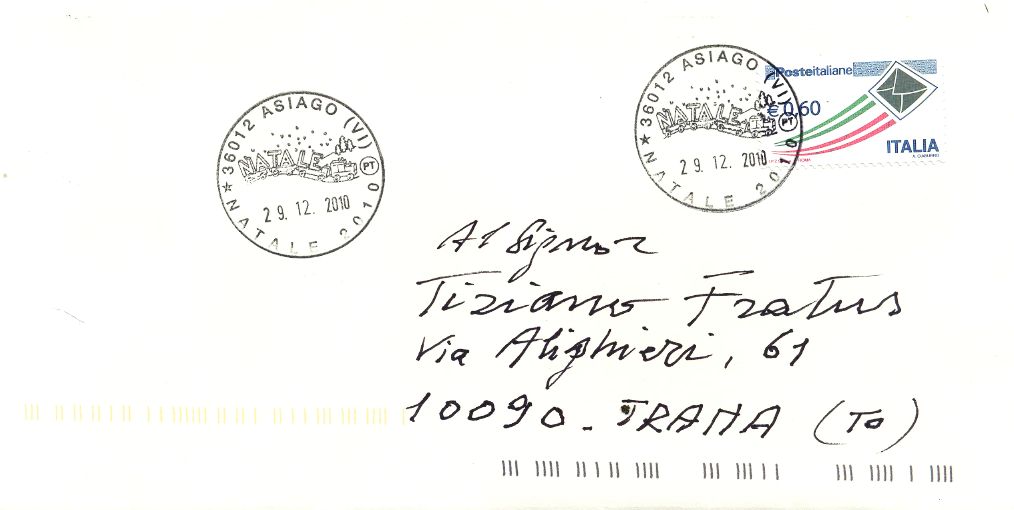 36012 ASIAGO (VI)
NATALE
PT
29.12.2010
★ NATALE 2010
36012 ASIAGO (VI)
NATALE
PT
29.12.2010
★ NATALE 2010
Posteitaliane
€0,60
ITALIA
Al Signor
Tiziano Fratus
Via Alighieri, 61
10090 - TRANA (To)